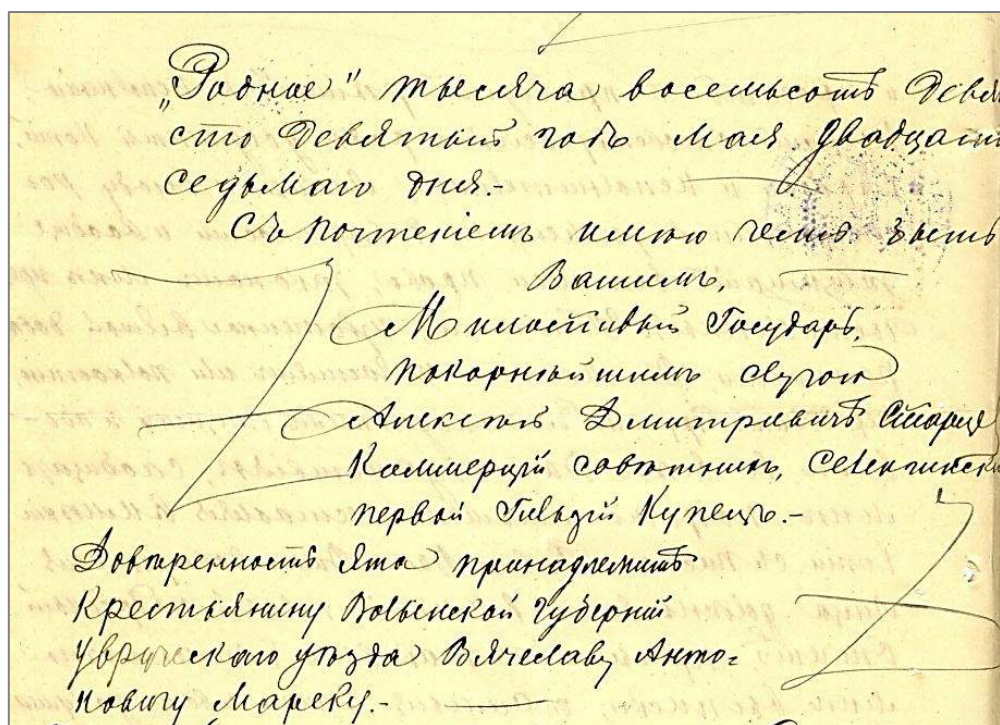 „Родное" тысяча восемьсотъ девя
сто девятый годъ мая двадцат
седьмаго дня.-
Съ почтеніемъ имѣю честь быть
Вашимъ,
Милостивый Государь,
покорнѣйшимъ слугою
Алексѣй Дмитріевичъ Старц
Коммерціи совѣтникъ, Селенгинск
первой Гильдіи Купецъ.-
Довѣренность эта принадлежитъ
Крестьянину Волынской губерніи
Увручскаго уѣзда Вячеславу Анто=
новичу Мареку.-